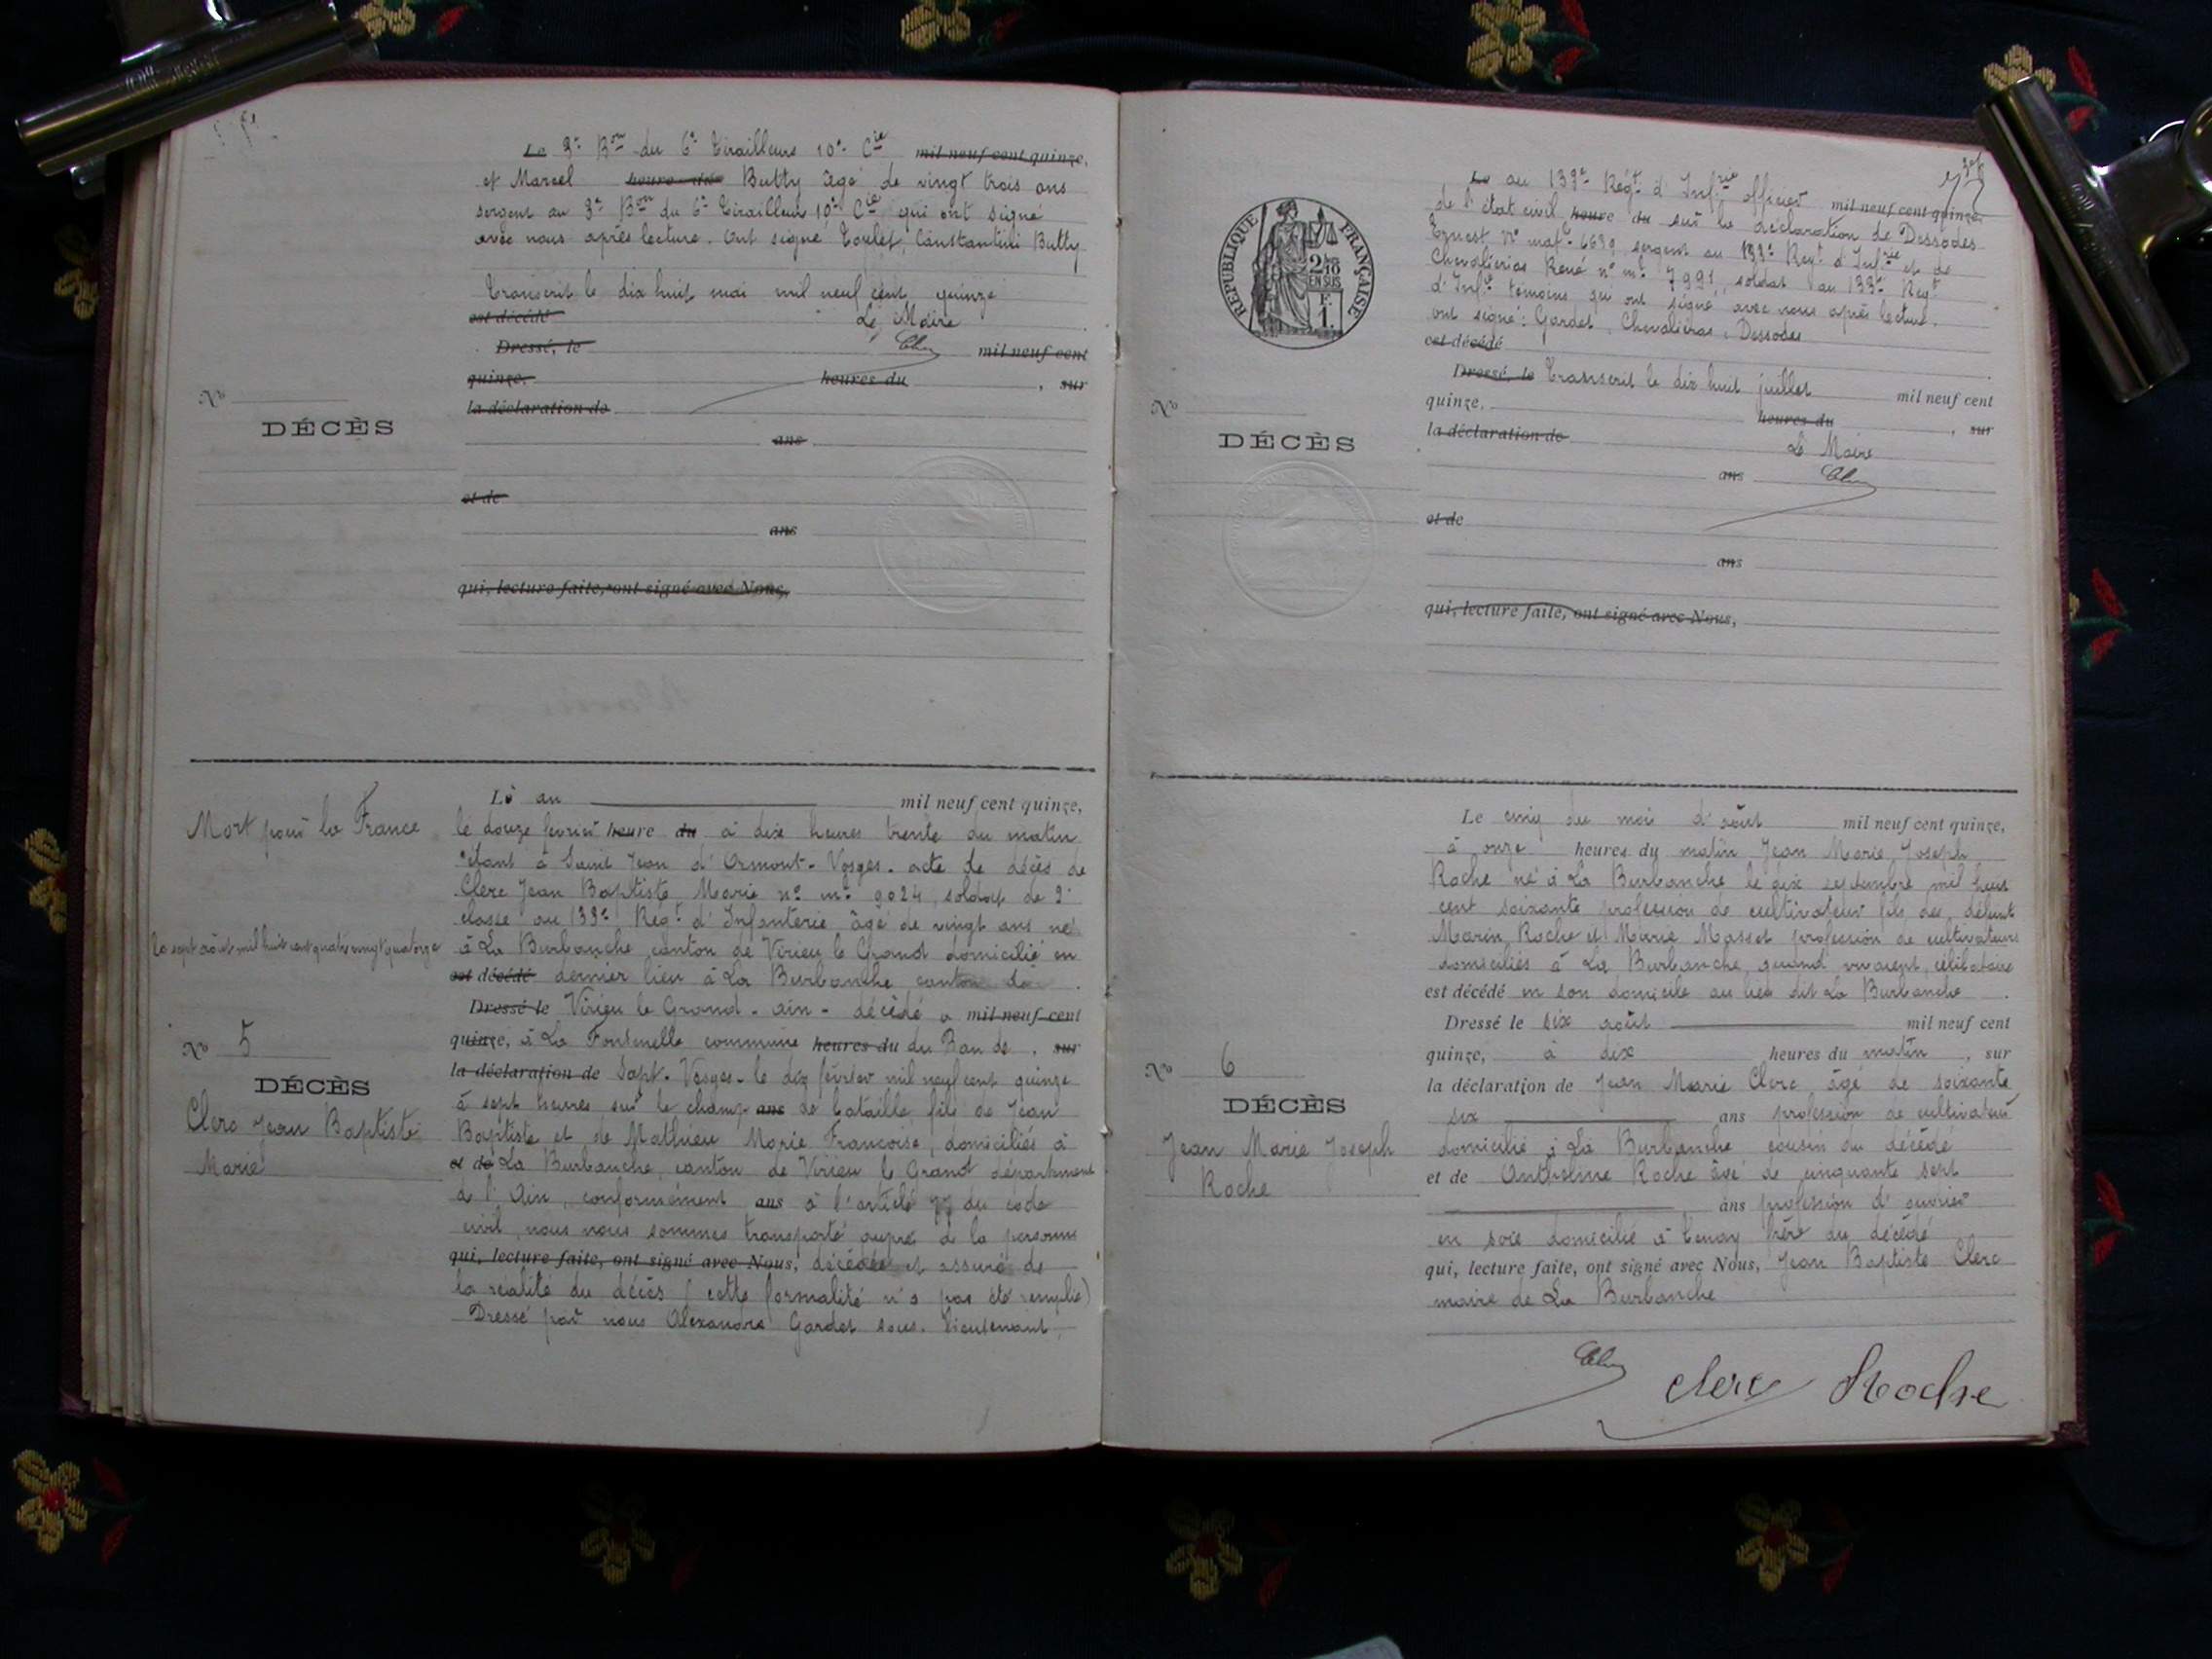 Le 3e Bon du 6e Tirailleurs 10e Cie mil neuf cent quinze,
et Marcel heure du Butty âgé de vingt trois ans
sergent au 3e Bon du 6e Tirailleurs 10e Cie qui ont signé
avec nous après lecture. Ont signé Toulet, Constantini Butty
Transcrit le dix huit mai mil neuf cent quinze
est décédé Le Maire
Dressé, le mil neuf cent
quinze. heures du , sur
la déclaration de
No
DÉCÈS
ans
et de
ans
qui, lecture faite, ont signé avec Nous,
Mort pour la France
le sept août mil huit cent quatre vingt quatorze
No 5
DÉCÈS
Clerc Jean Baptiste
Marie
Le an mil neuf cent quinze,
le douze février heure du à dix heures trente du matin
étant à Saint Jean d'Ormont - Vosges. acte de décès de
Clerc Jean Baptiste Marie no mle 9024, soldat de 2e
classe au 133e Régt d'Infanterie, âgé de vingt ans né
à La Burbanche canton de Virieu le Grand domicilié en
est décédé dernier lieu à La Burbanche canton de
Dressé le Virieu le Grand - ain - décédé a mil neuf cent
quinze, à La Fontenelle commune heures du du Ban de , sur
la déclaration de Sapt. Vosges - le dix février mil neuf cent quinze
à sept heures sur le champ ans de bataille fils de Jean
Baptiste et de Mathieu Marie Françoise, domiciliés à
et de La Burbanche, canton de Virieu le Grand département
de l'Ain, conformément ans à l'article 77 du code
civil, nous nous sommes transporté auprès de la personne
qui, lecture faite, ont signé avec Nous, décédée et assuré de
la réalité du décès (cette formalité n'a pas été remplie)
Dressé par nous Alexandre Gardet sous-lieutenant,
RÉPUBLIQUE FRANÇAISE
2/10
EN SUS
F.
1.
Le au 133e Régt d'Infrie officier mil neuf cent quinze,
de l'état civil heure du sur la déclaration de Dessodes
Ernest, no matle 6639, sergent au 133e Régt d'Infrie et de
Chevalieras René no mle 7991, soldat au 133e Régt
d'Infie témoins qui ont signé avec nous après lecture.
ont signé : Gardet, Chevalieras, Dessodes
est décédé
Dressé, le Transcrit le dix huit juillet mil neuf cent
quinze, heures du , sur
la déclaration de Le Maire
No
DÉCÈS
ans
et de
ans
qui, lecture faite, ont signé avec Nous,
No 6
DÉCÈS
Jean Marie Joseph
Roche
Le cinq du mois d'août mil neuf cent quinze,
à onze heures du matin Jean Marie Joseph
Roche né à La Burbanche le dix septembre mil huit
cent soixante profession de cultivateur fils de défunt
Marin Roche et Marie Masset profession de cultivateurs
domiciliés à La Burbanche quand vivaient, célibataire
est décédé en son domicile au lieu dit La Burbanche .
Dressé le six août mil neuf cent
quinze, à dix heures du matin , sur
la déclaration de Jean Marie Clerc âgé de soixante
six ans profession de cultivateur
domicilié à La Burbanche cousin du décédé
et de Anthelme Roche âgé de cinquante sept
ans profession d'ouvrier
en soie domicilié à Tenay frère du décédé
qui, lecture faite, ont signé avec Nous, Jean Baptiste Clerc
maire de La Burbanche
Clerc Roche